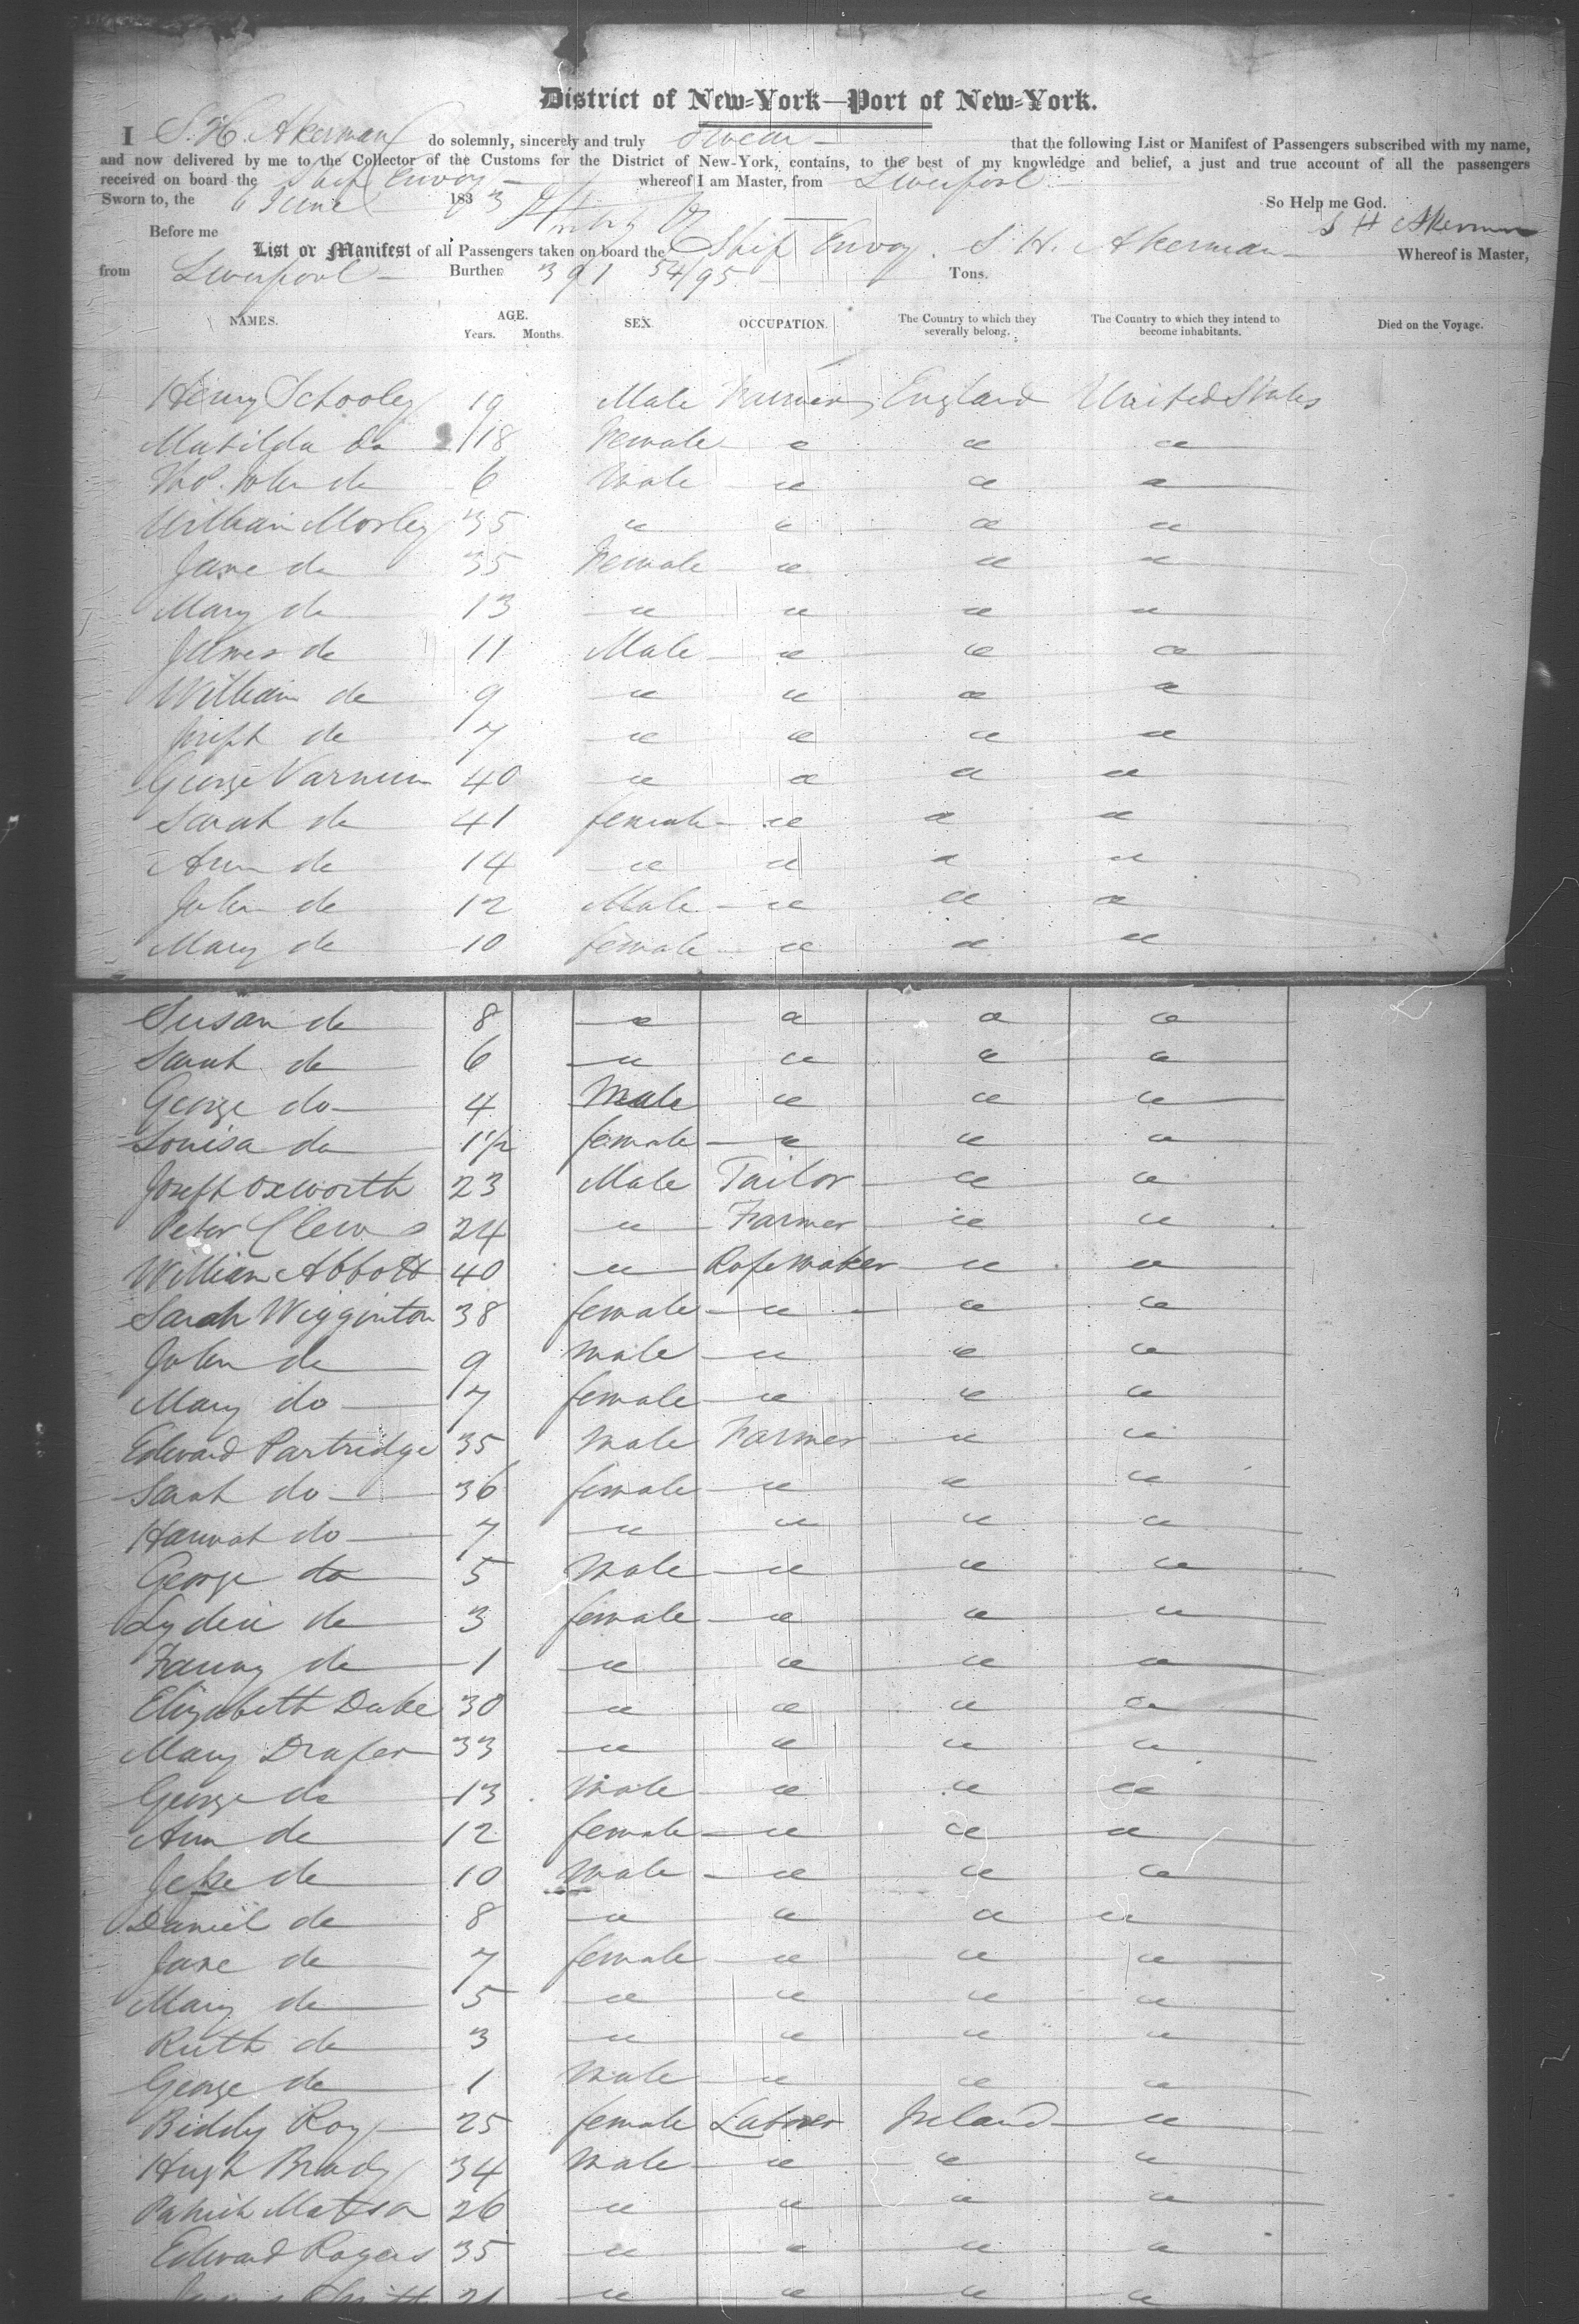 District of New=York—Port of New=York.
I S. H. Akerman do solemnly, sincerely and truly swear that the following List or Manifest of Passengers subscribed with my name,
and now delivered by me to the Collector of the Customs for the District of New-York, contains, to the best of my knowledge and belief, a just and true account of all the passengers
received on board the Ship Envoy whereof I am Master, from Liverpool
Sworn to, the 6 June 1833 So Help me God.
Before me S H Akerman
List or Manifest of all Passengers taken on board the Ship Envoy. S. H. Akerman Whereof is Master,
from Liverpool Burthen 391 54/95 Tons.
NAMES. AGE. Years. Months. SEX. OCCUPATION. The Country to which they severally belong. The Country to which they intend to become inhabitants. Died on the Voyage.
Henry Schooley 19 Male Farmer England United States
Matilda do 18 Female " " "
Thos. John do 6 Male " " "
William Morley 35 " " " "
Jane do 35 Female " " "
Mary do 13 " " " "
James do 11 Male " " "
William do 9 " " " "
Joseph do 7 " " " "
George Varnum 40 " " " "
Sarah do 41 female " " "
Ann do 14 " " " "
John do 12 Male " " "
Mary do 10 female " " "
Susan do 8 " " " "
Sarah do 6 " " " "
George do 4 Male " " "
Louisa do 1 1/2 female " " "
Joseph Oxworth 23 Male Tailor " "
Peter Clews 24 " Farmer " "
William Abbott 40 " Ropemaker " "
Sarah Wigginton 38 female " " "
John do 9 male " " "
Mary do 7 female " " "
Edward Partridge 35 Male Farmer " "
Sarah do 36 female " " "
Hannah do 7 " " " "
George do 5 Male " " "
Lydia do 3 female " " "
Fanny do 1 " " " "
Elizabeth Duke 30 " " " "
Mary Draper 33 " " " "
George do 13 Male " " "
Ann do 12 female " " "
do 10 Male " " "
Daniel do 8 " " " "
Jane do 7 female " " "
Mary do 5 " " " "
Ruth do 3 " " " "
George do 1 Male " " "
Biddy Roy 25 female Laborer Ireland "
Hugh Brady 34 Male " " "
Patrick Matson 26 " " " "
Edward Rogers 35 " " " "
21 " " " "